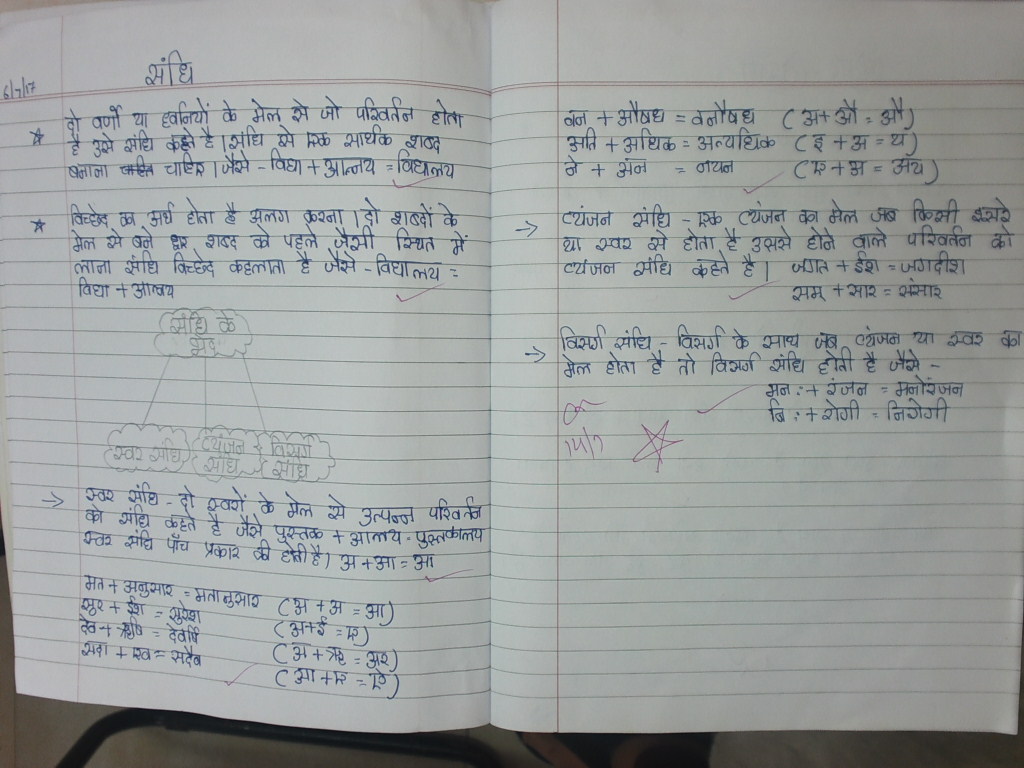 संधि
6/7/17
दो वर्णो या ध्वनियों के मेल से जो परिवर्तन होता
है उसे संधि कहते है। संधि से एक सार्थक शब्द
बनाना चाहिए। जैसे - विद्या + आलय = विद्यालय
विच्छेद का अर्थ होता है अलग करना। दो शब्दों के
मेल से बने शब्द को पहले जैसी स्थित में
लाना संधि विच्छेद कहलाता है जैसे - विद्यालय =
विद्या + आलय
संधि के
भेद
स्वर संधि
व्यंजन
संधि
विसर्ग
संधि
→ स्वर संधि - दो स्वरों के मेल से उत्पन्न परिवर्तन
को संधि कहते है जैसे पुस्तक + आलय = पुस्तकालय
स्वर संधि पाँच प्रकार की होती है। अ + आ = आ
मत + अनुसार = मतानुसार (अ + अ = आ)
सुर + ईश = सुरेश (अ + ई = ए)
देव + ऋषि = देवर्षि (अ + ऋ = अर)
सदा + एव = सदैव (आ + ए = ऐ)
वन + औषध = वनौषध (अ + औ = औ)
अति + अधिक = अत्यधिक (इ + अ = य)
ने + अन = नयन (ए + अ = अय)
→ व्यंजन संधि - एक व्यंजन का मेल जब किसी दूसरे
या स्वर से होता है उससे होने वाले परिवर्तन को
व्यंजन संधि कहते है। जगत + ईश = जगदीश
सम् + सार = संसार
→ विसर्ग संधि - विसर्ग के साथ जब व्यंजन या स्वर का
मेल होता है तो विसर्ग संधि होती है जैसे -
मन : + रंजन = मनोरंजन
नि : + रोगी = निरोगी
14/7